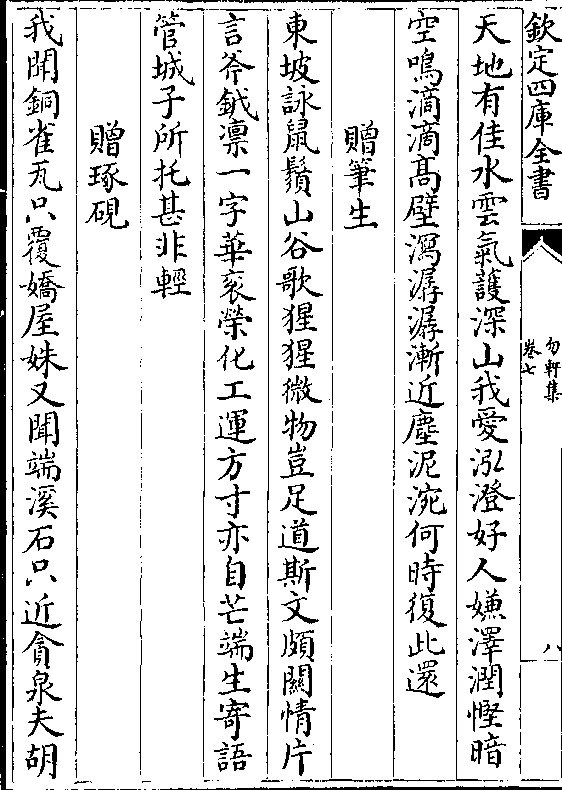 欽定四庫全書
勿軒集
卷七
八
天地有佳水雲氣護深山我愛泓澄好人嫌澤潤慳暗
空鳴滴滴髙壁瀉潺潺漸近塵泥涴何時復此還
贈筆生
東坡詠鼠鬚山谷歌猩猩微物豈足道斯文頗闗情片
言斧鉞凛一字華衮榮化工運方寸亦自芒端生寄語
管城子所托甚非輕
贈琢硯
我聞銅雀瓦只覆嬌屋姝又聞端溪石只近貪泉夫胡